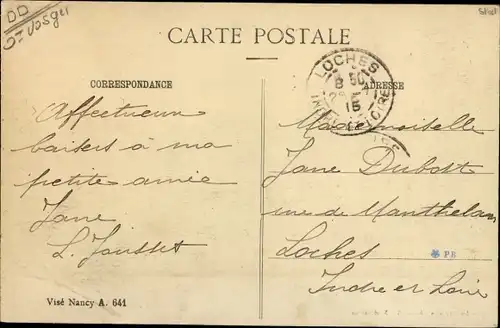 CARTE POSTALE
CORRESPONDANCE
Affectueux
baisers à ma
petite amie
Jane
L. Jousset
Visé Nancy A. 641
LOCHES
8 50
15
INDRE ET LOIRE
ADRESSE
Mademoiselle
Jane Dubost
rue de Manthelan
Loches
P R
Indre et Loire